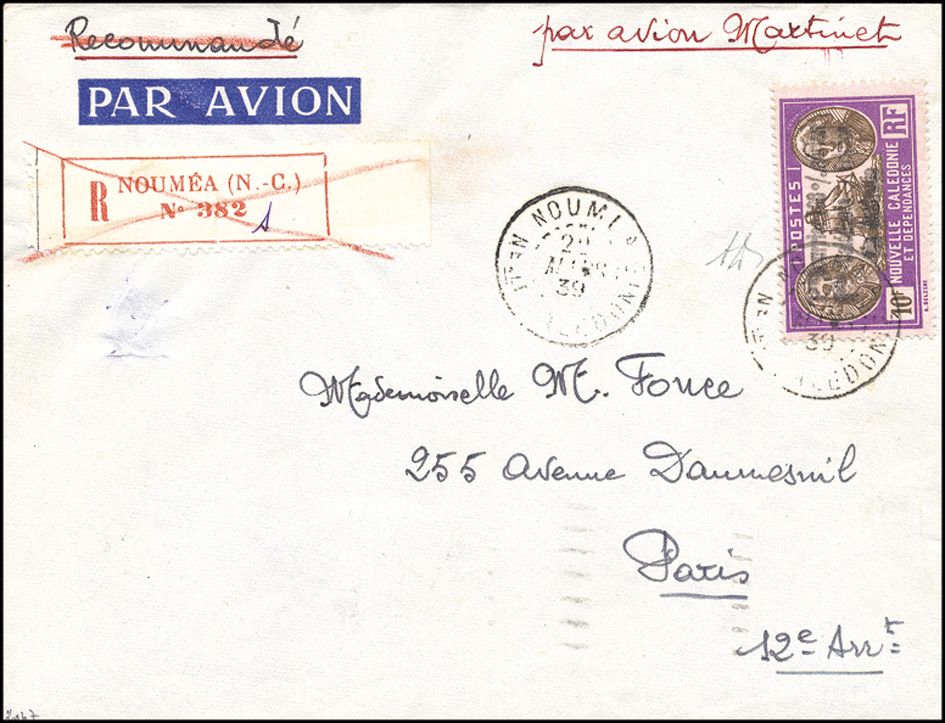 Recommandé
par avion Martinet
PAR AVION
R NOUMÉA (N.-C.)
N° 382
NOUM
29
MARS
39
POSTES
RF
NOUVELLE CALEDONIE
ET DEPENDANCES
10F
39
Mademoiselle M. Fonce
255 avenue Daumesnil
Paris
12e Arrt